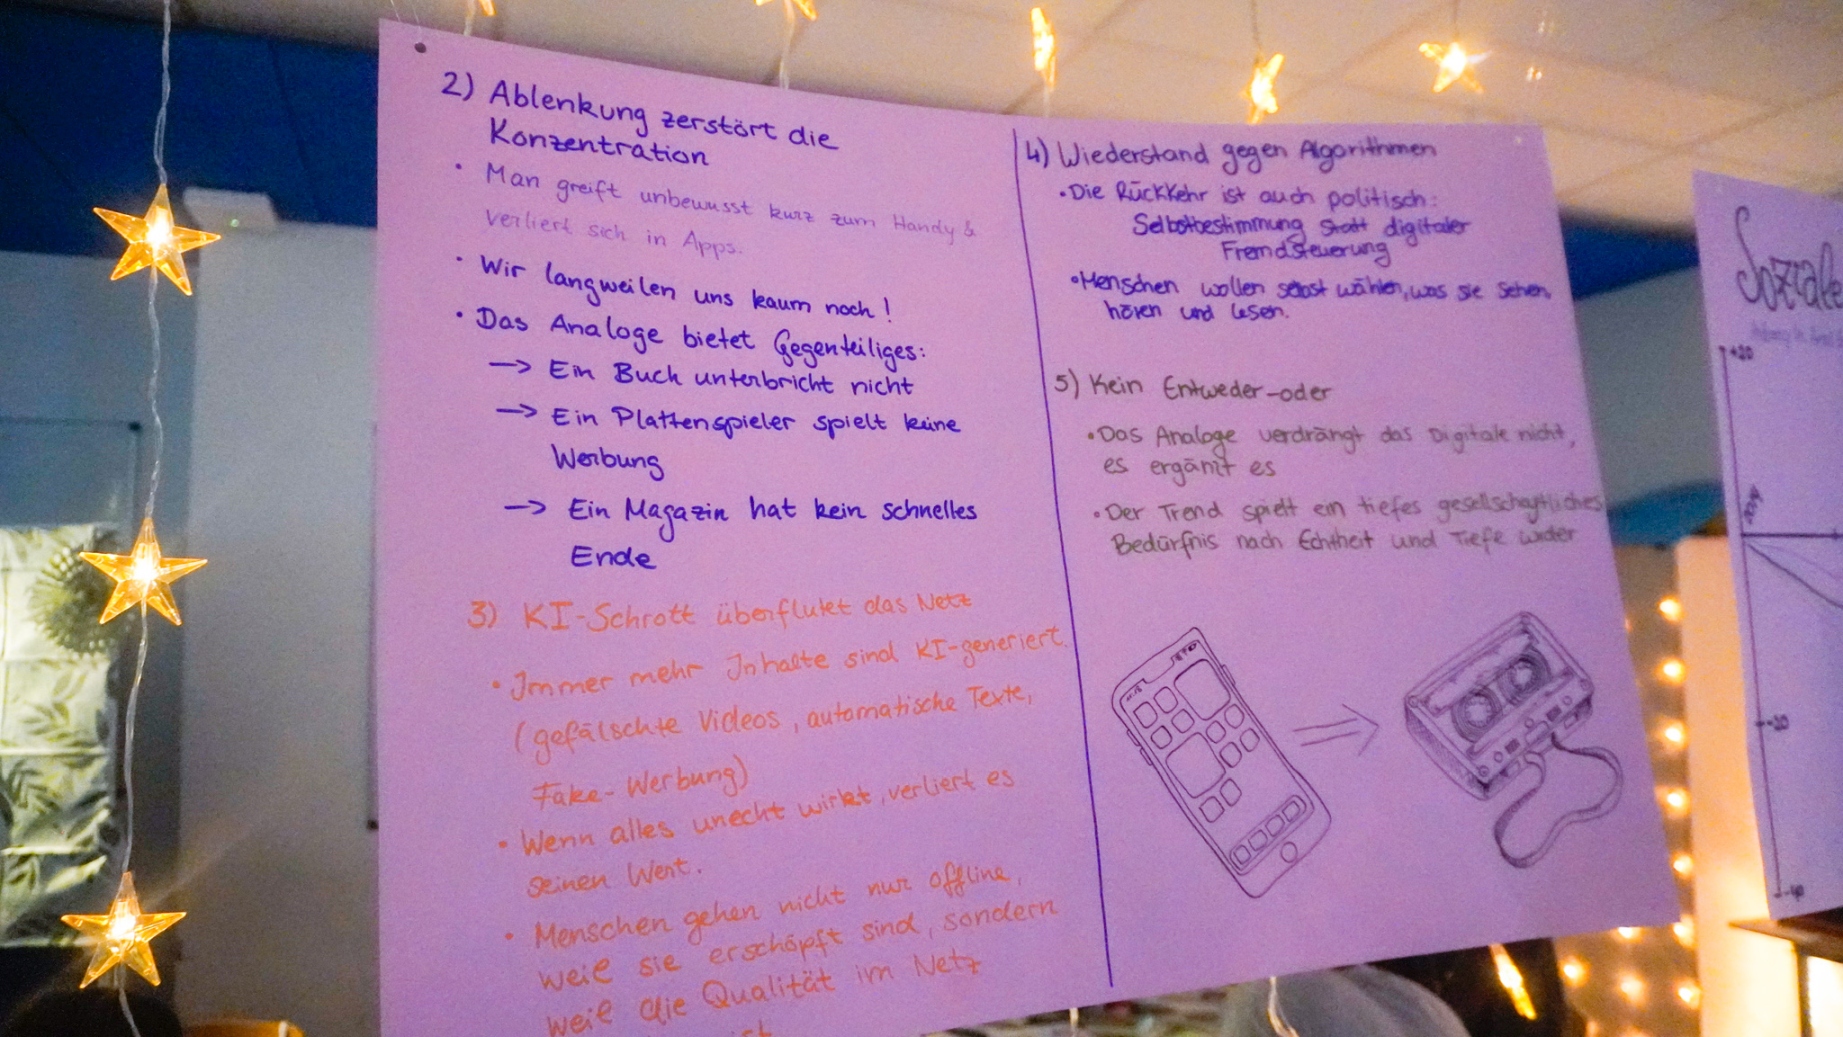 2) Ablenkung zerstört die
Konzentration
• Man greift unbewusst kurz zum Handy &
verliert sich in Apps.
• Wir langweilen uns kaum noch!
• Das Analoge bietet Gegenteiliges:
→ Ein Buch unterbricht nicht
→ Ein Plattenspieler spielt keine
Werbung
→ Ein Magazin hat kein schnelles
Ende
3) KI-Schrott überflutet das Netz
• Immer mehr Inhalte sind KI-generiert.
(gefälschte Videos, automatische Texte,
Fake-Werbung)
• Wenn alles unecht wirkt, verliert es
seinen Wert.
• Menschen gehen nicht nur offline,
weil sie erschöpft sind, sondern
weil die Qualität im Netz
4) Wiederstand gegen Algorithmen
• Die Rückkehr ist auch politisch:
Selbstbestimmung statt digitaler
Fremdsteuerung
• Menschen wollen selbst wählen, was sie sehen,
hören und lesen.
5) Kein Entweder-oder
• Das Analoge verdrängt das Digitale nicht,
es ergänzt es
• Der Trend spielt ein tiefes gesellschaftliches
Bedürfnis nach Echtheit und Tiefe wider
Soziale
+20
-20